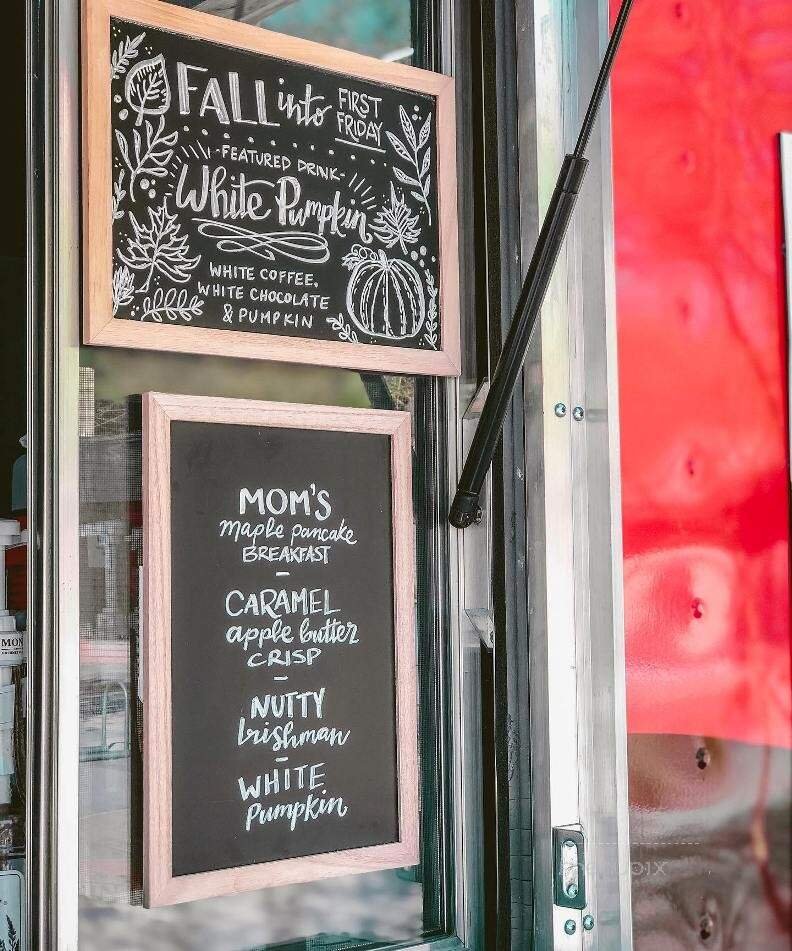 FALL into FIRST
FRIDAY
-FEATURED DRINK-
White Pumpkin
WHITE COFFEE,
WHITE CHOCOLATE
& PUMPKIN
MOM'S
maple pancake
BREAKFAST
-
CARAMEL
apple butter
CRISP
-
NUTTY
Irishman
-
WHITE
Pumpkin
MON